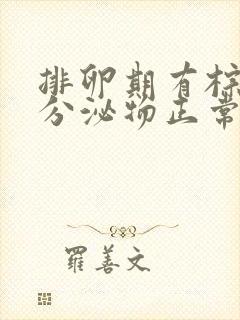 排卵期有棕
分泌物正常
羅善文